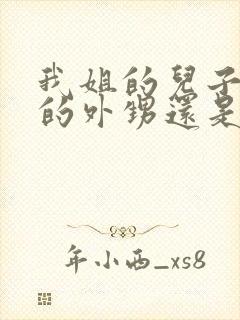 我姐的兒子
的外甥還是
年小西_xs8